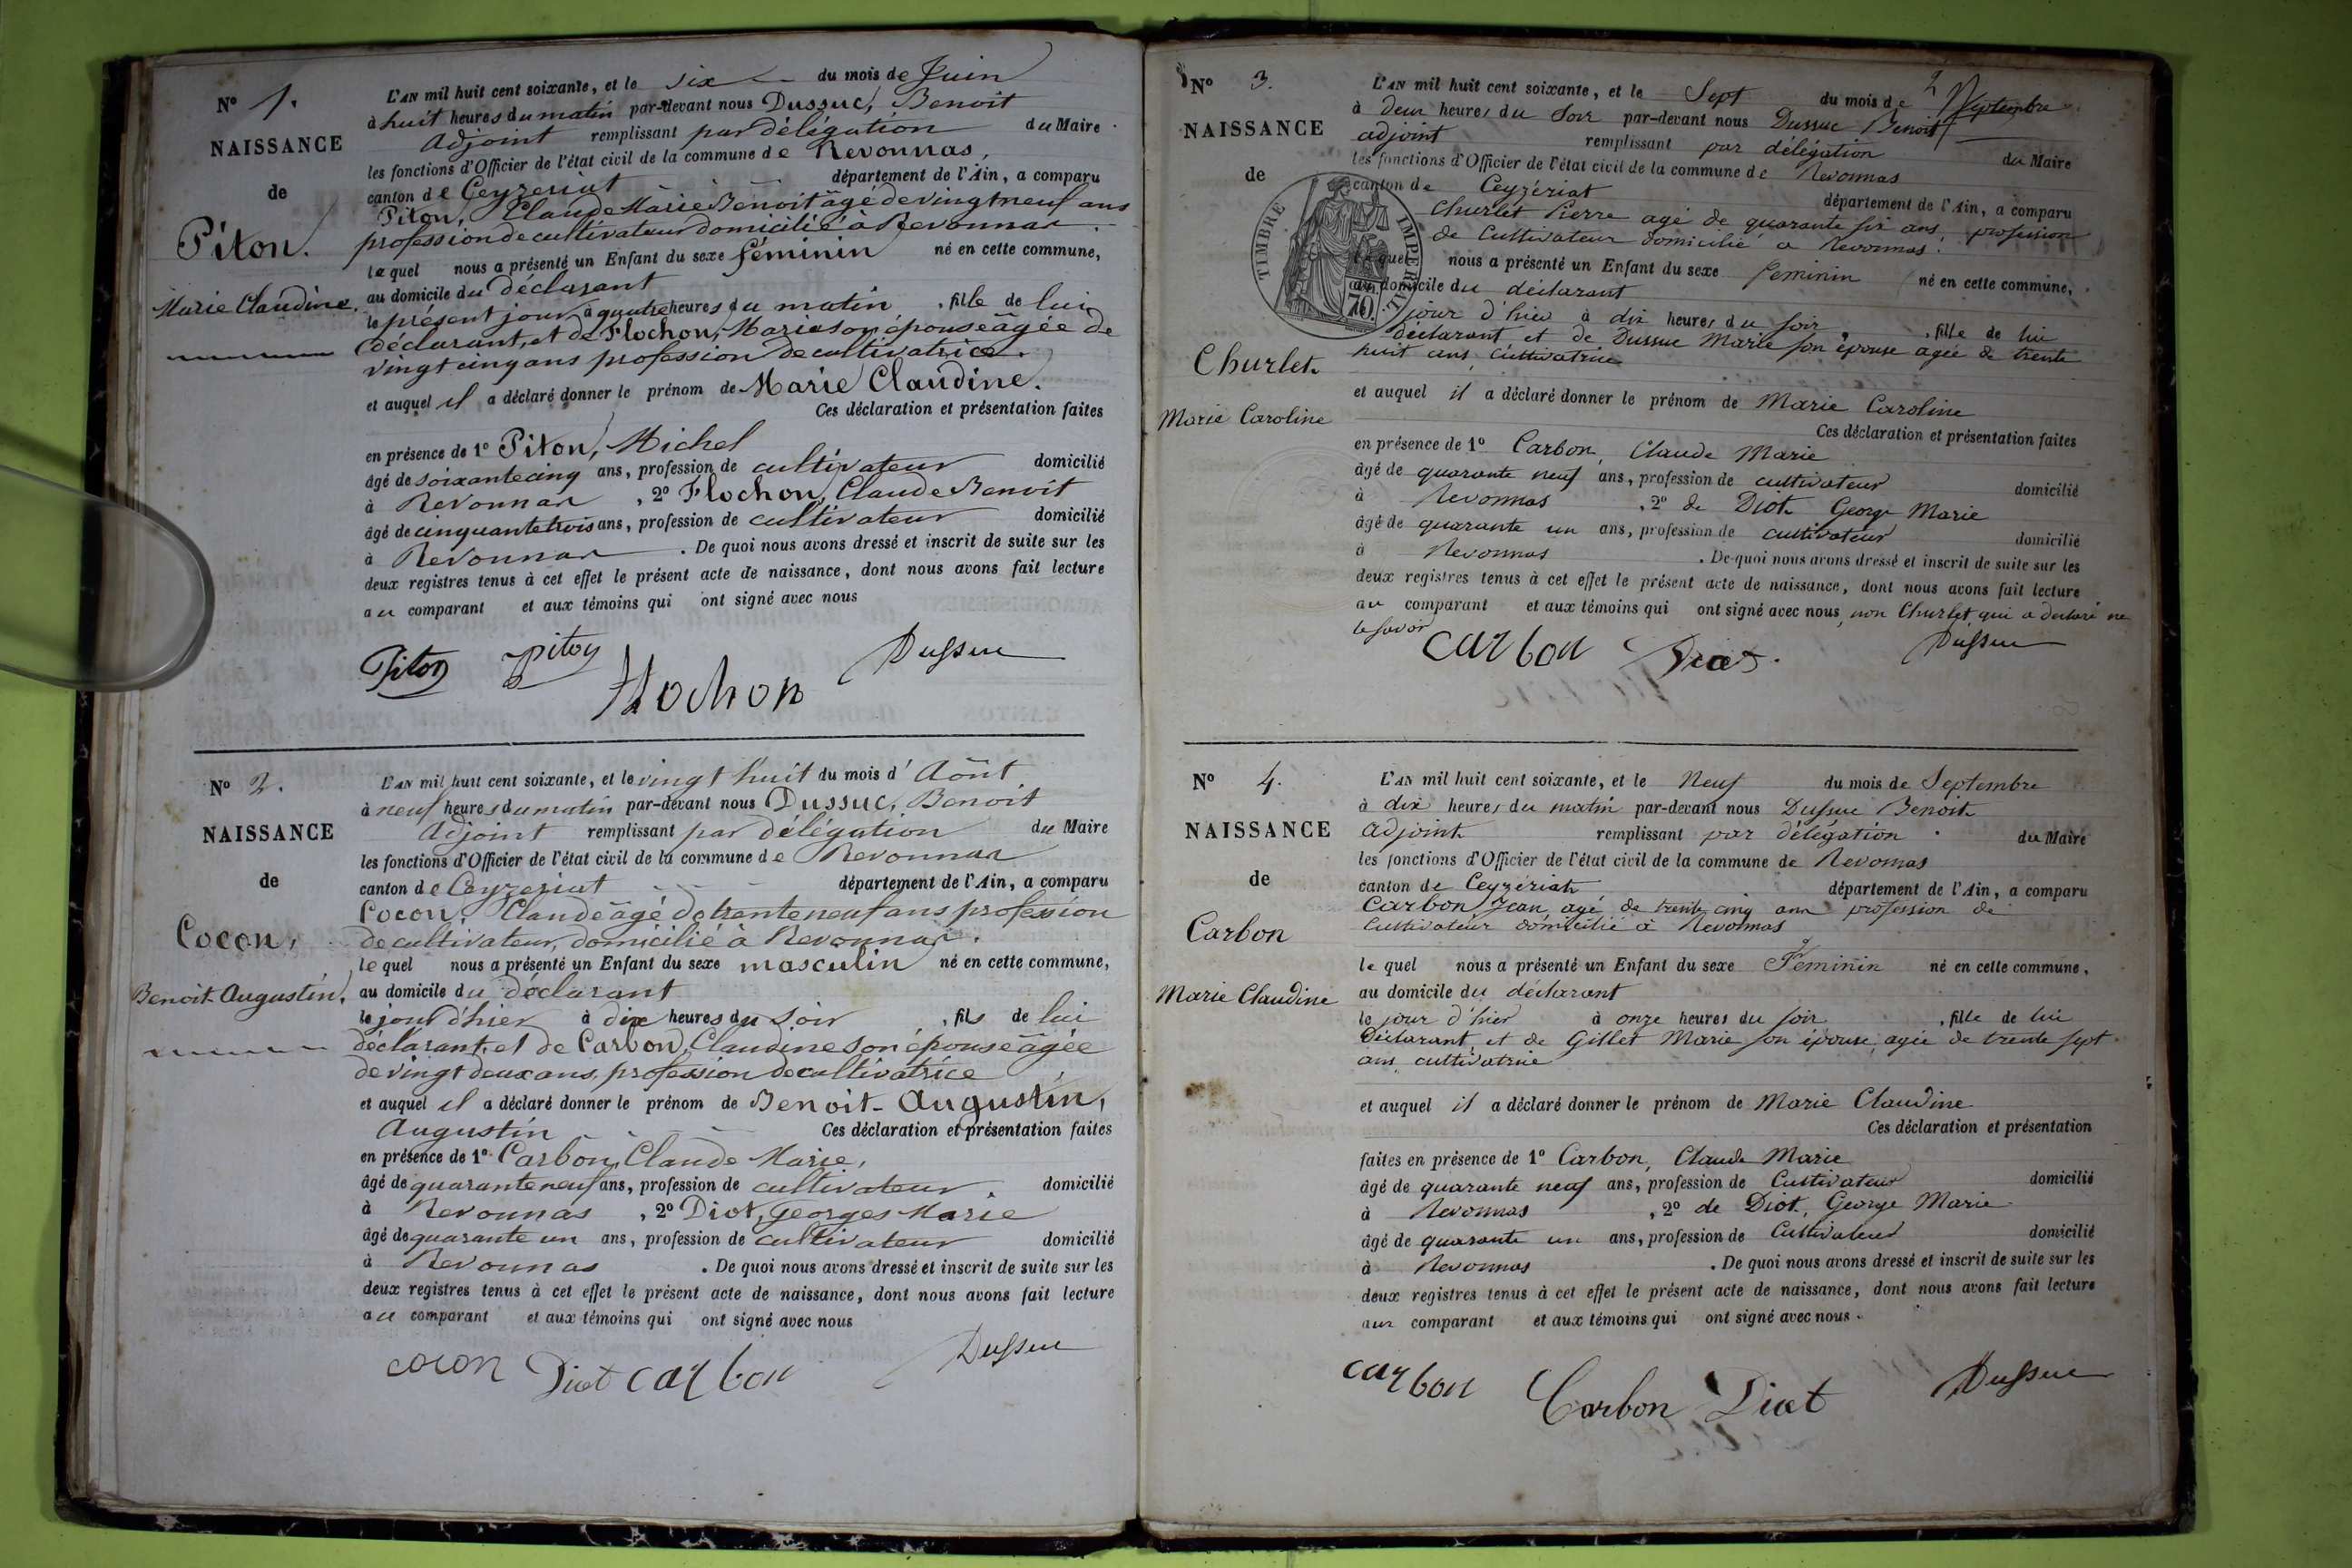 N° 1.
NAISSANCE
de
Piton.
Marie Claudine.
L'AN mil huit cent soixante, et le six du mois de Juin
à huit heures du matin par-devant nous Dussuc, Benoit
Adjoint remplissant par délégation du Maire
les fonctions d'Officier de l'état civil de la commune de Revonnas,
canton de Ceyzeriat département de l'Ain, a comparu
Piton, Claude Marie Benoit âgé de vingt neuf ans
profession de cultivateur domicilié à Revonnas.
lequel nous a présenté un Enfant du sexe féminin né en cette commune,
au domicile du déclarant
le présent jour à quatre heures du matin, fille de lui
déclarant, et de Flochon, Marie son épouse âgée de
vingt cinq ans profession de cultivatrice.
et auquel il a déclaré donner le prénom de Marie Claudine.
Ces déclaration et présentation faites
en présence de 1° Piton, Michel
âgé de soixante cinq ans, profession de cultivateur domicilié
à Revonnas, 2° Flochon, Claude Benoit
âgé de cinquante trois ans, profession de cultivateur domicilié
à Revonnas. De quoi nous avons dressé et inscrit de suite sur les
deux registres tenus à cet effet le présent acte de naissance, dont nous avons fait lecture
au comparant et aux témoins qui ont signé avec nous
Piton Piton Flochon Dussuc
N° 2.
NAISSANCE
de
Cocon,
Benoit Augustin,
L'AN mil huit cent soixante, et le vingt huit du mois d'Août
à neuf heures du matin par-devant nous Dussuc, Benoit
Adjoint remplissant par délégation du Maire
les fonctions d'Officier de l'état civil de la commune de Revonnas
canton de Ceyzeriat département de l'Ain, a comparu
Cocon, Claude âgé de trente neuf ans profession
de cultivateur, domicilié à Revonnas.
lequel nous a présenté un Enfant du sexe masculin né en cette commune,
au domicile du déclarant
le jour d'hier à dix heures du soir, fils de lui
déclarant, et de Carbon, Claudine son épouse âgée
de vingt deux ans, profession de cultivatrice
et auquel il a déclaré donner le prénom de Benoit-Augustin,
Augustin Ces déclaration et présentation faites
en présence de 1° Carbon, Claude Marie,
âgé de quarante neuf ans, profession de cultivateur. domicilié
à Revonnas, 2° Diot, Georges Marie
âgé de quarante un ans, profession de cultivateur domicilié
à Revonnas. De quoi nous avons dressé et inscrit de suite sur les
deux registres tenus à cet effet le présent acte de naissance, dont nous avons fait lecture
au comparant et aux témoins qui ont signé avec nous
cocon Diot carbon Dussuc
N° 3.
NAISSANCE
de
TIMBRE IMPERIAL
70.
Churlet.
Marie Caroline
L'AN mil huit cent soixante, et le Sept du mois de Septembre
à deux heures du Soir par-devant nous Dussuc Benoit
adjoint remplissant par délégation du Maire
les fonctions d'Officier de l'état civil de la commune de Revonnas
canton de Ceyzériat département de l'Ain, a comparu
Churlet Pierre agé de quarante six ans profession
de Cultivateur domicilié a Revonnas.
lequel nous a présenté un Enfant du sexe feminin né en cette commune,
au domicile du déclarant
jour d'hier à dix heures du soir, fille de lui
déclarant et de Dussuc Marie son épouse agée de trente
huit ans, cultivatrice
et auquel il a déclaré donner le prénom de Marie Caroline
Ces déclaration et présentation faites
en présence de 1° Carbon, Claude Marie
âgé de quarante neuf ans, profession de cultivateur domicilié
à Revonnas, 2° de Diot George Marie
âgé de quarante un ans, profession de cultivateur domicilié
à Revonnas. De quoi nous avons dressé et inscrit de suite sur les
deux registres tenus à cet effet le présent acte de naissance, dont nous avons fait lecture
au comparant et aux témoins qui ont signé avec nous, non Churlet qui a declaré ne
le savoir
carbon Diot. Dussuc
N° 4.
NAISSANCE
de
Carbon
Marie Claudine
L'AN mil huit cent soixante, et le Neuf du mois de Septembre
à dix heures du matin par-devant nous Dussuc Benoit
adjoint remplissant par délégation du Maire
les fonctions d'Officier de l'état civil de la commune de Revonnas
canton de Ceyzériat département de l'Ain, a comparu
Carbon Jean agé de trente cinq ans profession de
Cultivateur domicilié à Revonnas
lequel nous a présenté un Enfant du sexe Féminin né en cette commune,
au domicile du déclarant
le jour d'hier à onze heures du soir, fille de lui
Déclarant et de Gillet Marie son épouse, agée de trente sept
ans, cultivatrice
et auquel il a déclaré donner le prénom de Marie Claudine
Ces déclaration et présentation
faites en présence de 1° Carbon, Claude Marie
âgé de quarante neuf ans, profession de Cultivateur domicilié
à Revonnas, 2° de Diot, George Marie
âgé de quarante un ans, profession de Cultivateur domicilié
à Revonnas. De quoi nous avons dressé et inscrit de suite sur les
deux registres tenus à cet effet le présent acte de naissance, dont nous avons fait lecture
aux comparant et aux témoins qui ont signé avec nous.
carbon Carbon Diot Dussuc